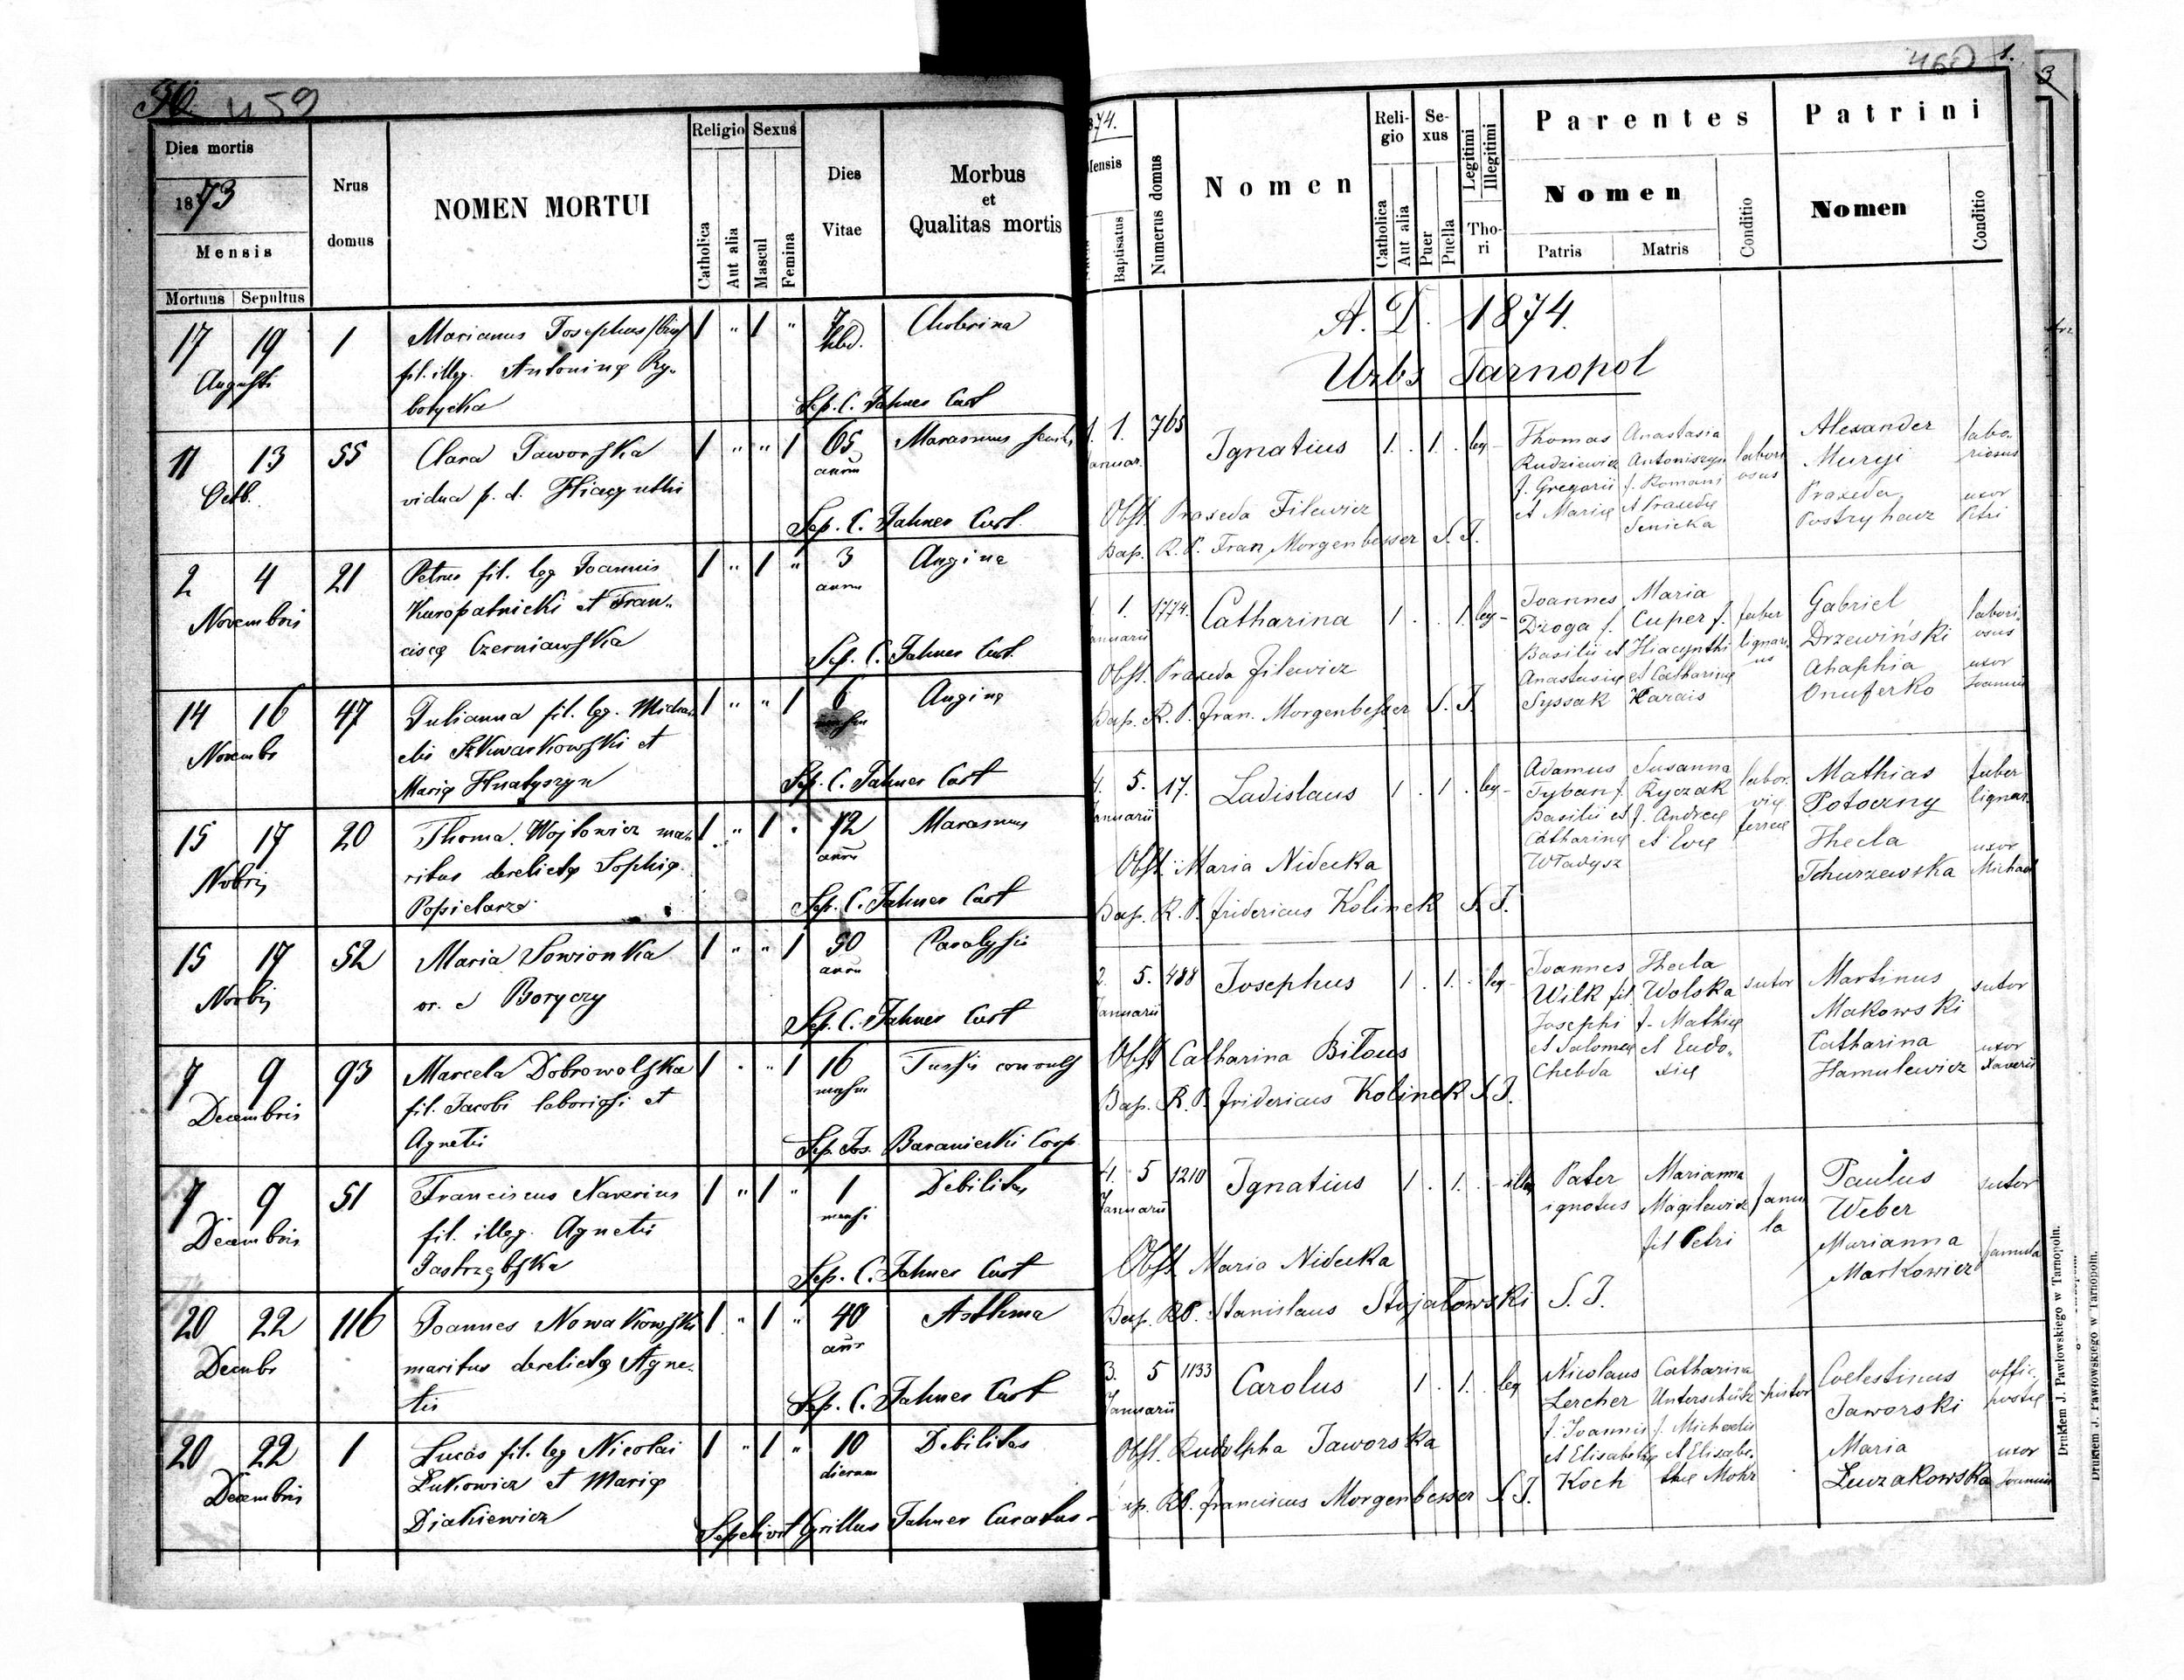 459
Dies mortis
1873
Mensis
Mortuus Sepultus
Nrus domus
NOMEN MORTUI
Religio
Catholica
Aut alia
Sexus
Mascul
Femina
Dies Vitae
Morbus et Qualitas mortis
17 19 1 Marianus Josephus 1 " 1 " 7 Cholerina
Augusti fil. illeg. Antoninę Ry- hbd.
botycka Sep. C. Jahner Curt
11 13 55 Clara Jaworska 1 " " 1 65 Marasmus
Octb. vidua p. d. Hiacynthi annor
Sep. C. Jahner Curt.
2 4 21 Petrus fil. leg Joannis 1 " 1 " 3 Angina
Novembris Kuropatnicki et Fran- annor
ciscę Czerniawska Sep. C. Jahner Curt.
14 16 47 Julianna fil. leg. Micha 1 " " 1 6 Angina
Novembr elis Szkwarkowski et
Marię Hnatyszyn Sep. C. Jahner Curt
15 17 20 Thoma Wojtowicz ma- 1 " 1 " 72 Marasmus
Nobris ritus derelictę Sophię annor
Popielarz Sep. C. Jahner Curt
15 17 52 Maria Sowionka 1 " " 1 50 Paralysis
Novbris Boryczy annor
Sep. C. Jahner Curt
7 9 93 Marcela Dobrowolska 1 " " 1 16 Tussis convuls
Decembris fil. Jacobi laboriosi et mensium
Agnetis Sep. Jos. Baraniecki Coop.
7 9 51 Franciscus Xaverius 1 " 1 " 1 Debilitas
Decembris fil. illeg. Agnetis mensis
Jastrzębska Sep. C. Jahner Curt
20 22 116 Joannes Nowakowski 1 " 1 " 40 Asthma
Decembr maritus derelictę Agne- annor
tis Sep. C. Jahner Curt
20 22 1 Lucas fil. leg Nicolai 1 " 1 " 10 Debilitas
Decembris Łukowicz et Marię dierum
Diakiewicz Sepelivit Cyrillus Jahner Curatus
460 1.
3
874.
Mensis
Baptisatus
Numerus domus
Nomen
Religio
Catholica
Aut alia
Sexus
Puer
Puella
Legitimi
Illegitimi
Thori
Parentes
Nomen
Patris
Matris
Conditio
Patrini
Nomen
Conditio
A. D. 1874.
Urbs Tarnopol
1. 1. 765 Ignatius 1 . 1 . leg- Thomas Anastasia labori Alexander labo-
Januar. Rudziewicz Antoniszyn osus Muryj riosus
f. Gregorii f. Romani Praxeda uxor
et Marię et Praxedę Postryhacz Petri
Senicka
Obst. Praxeda Filewicz
Bap. R. P. Fran Morgenbesser S. J.
1. 1. 1774. Catharina 1 . . 1 leg- Joannes Maria faber Gabriel labori-
Januarii Dżoga f. Cuper f. lignari Drzewiński osus
Basilii et Hiacynthi us Ahaphia uxor
Anastasię et Catharinę Onuferko Joannis
Syssak Karais
Obst. Praxeda Filewicz
Bap. R. P. Fran. Morgenbesser S. J.
4. 5. 17. Ladislaus 1 . 1 . leg- Adamus Susanna labor. Mathias faber
Januarii Tyban f. Ryczak vię Potoczny lignar.
Basilii et f. Andreę ferreę Thecla uxor
Catharinę et Evę Tchurzewska Michael
Władysz
Obst. Maria Nidecka
Bap. R. P. Fridericus Kolinek S. J.
2. 5. 488 Josephus 1 . 1 . leg- Joannes Thecla sutor Martinus sutor
Januarii Wilk fil. Wolska Makowski
Josephi f. Mathię Catharina uxor
et Salomeę et Eudo- Hamulewicz Xaverii
Chebda xię
Obst Catharina Biłous
Bap. R. P. Fridericus Kolinek S J.
4. 5 1210 Ignatius 1 . 1 . - illeg Pater Marianna famu Paulus sutor
Januarii ignotus Magilewicz la Weber
fil Petri Marianna famula
Markowicz
Obst Maria Nidecka
Bap. RP. Stanislaus Stojałowski S. J.
3. 5 1133 Carolus 1 . 1 . leg Nicolaus Catharina pistor Coelestinus offic.
Januarii Lercher Unterschütz Jaworski postę
f. Joannis f. Michaelis Maria uxor
et Elisabethę et Elisabe- Łuczakowska Joannis
Koch thę Mohr
Obst. Rudolpha Jaworska
Bap. RP. Franciscus Morgenbesser S J.
Drukiem J. Pawłowskiego w Tarnopolu.
Drukiem J. Pawłowskiego w Tarnopolu.